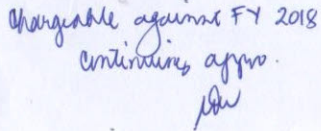 Chargeable against FY 2018
continuing appro.